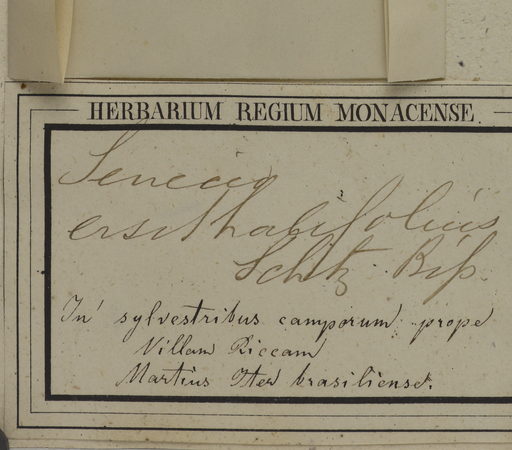 HERBARIUM REGIUM MONACENSE
Senecio
erisithalifolius
Schtz Bip.
In sylvestribus camporum prope
Villam Riccam
Martius Iter brasiliense.